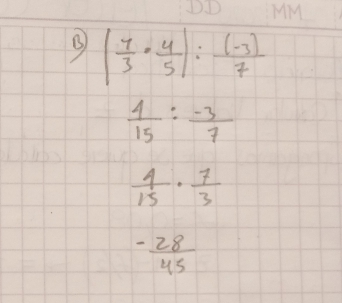 DD MM
B) |1/3 · 4/5| : (-3)/7
4/15 : -3/7
4/15 · 7/3
-28/45